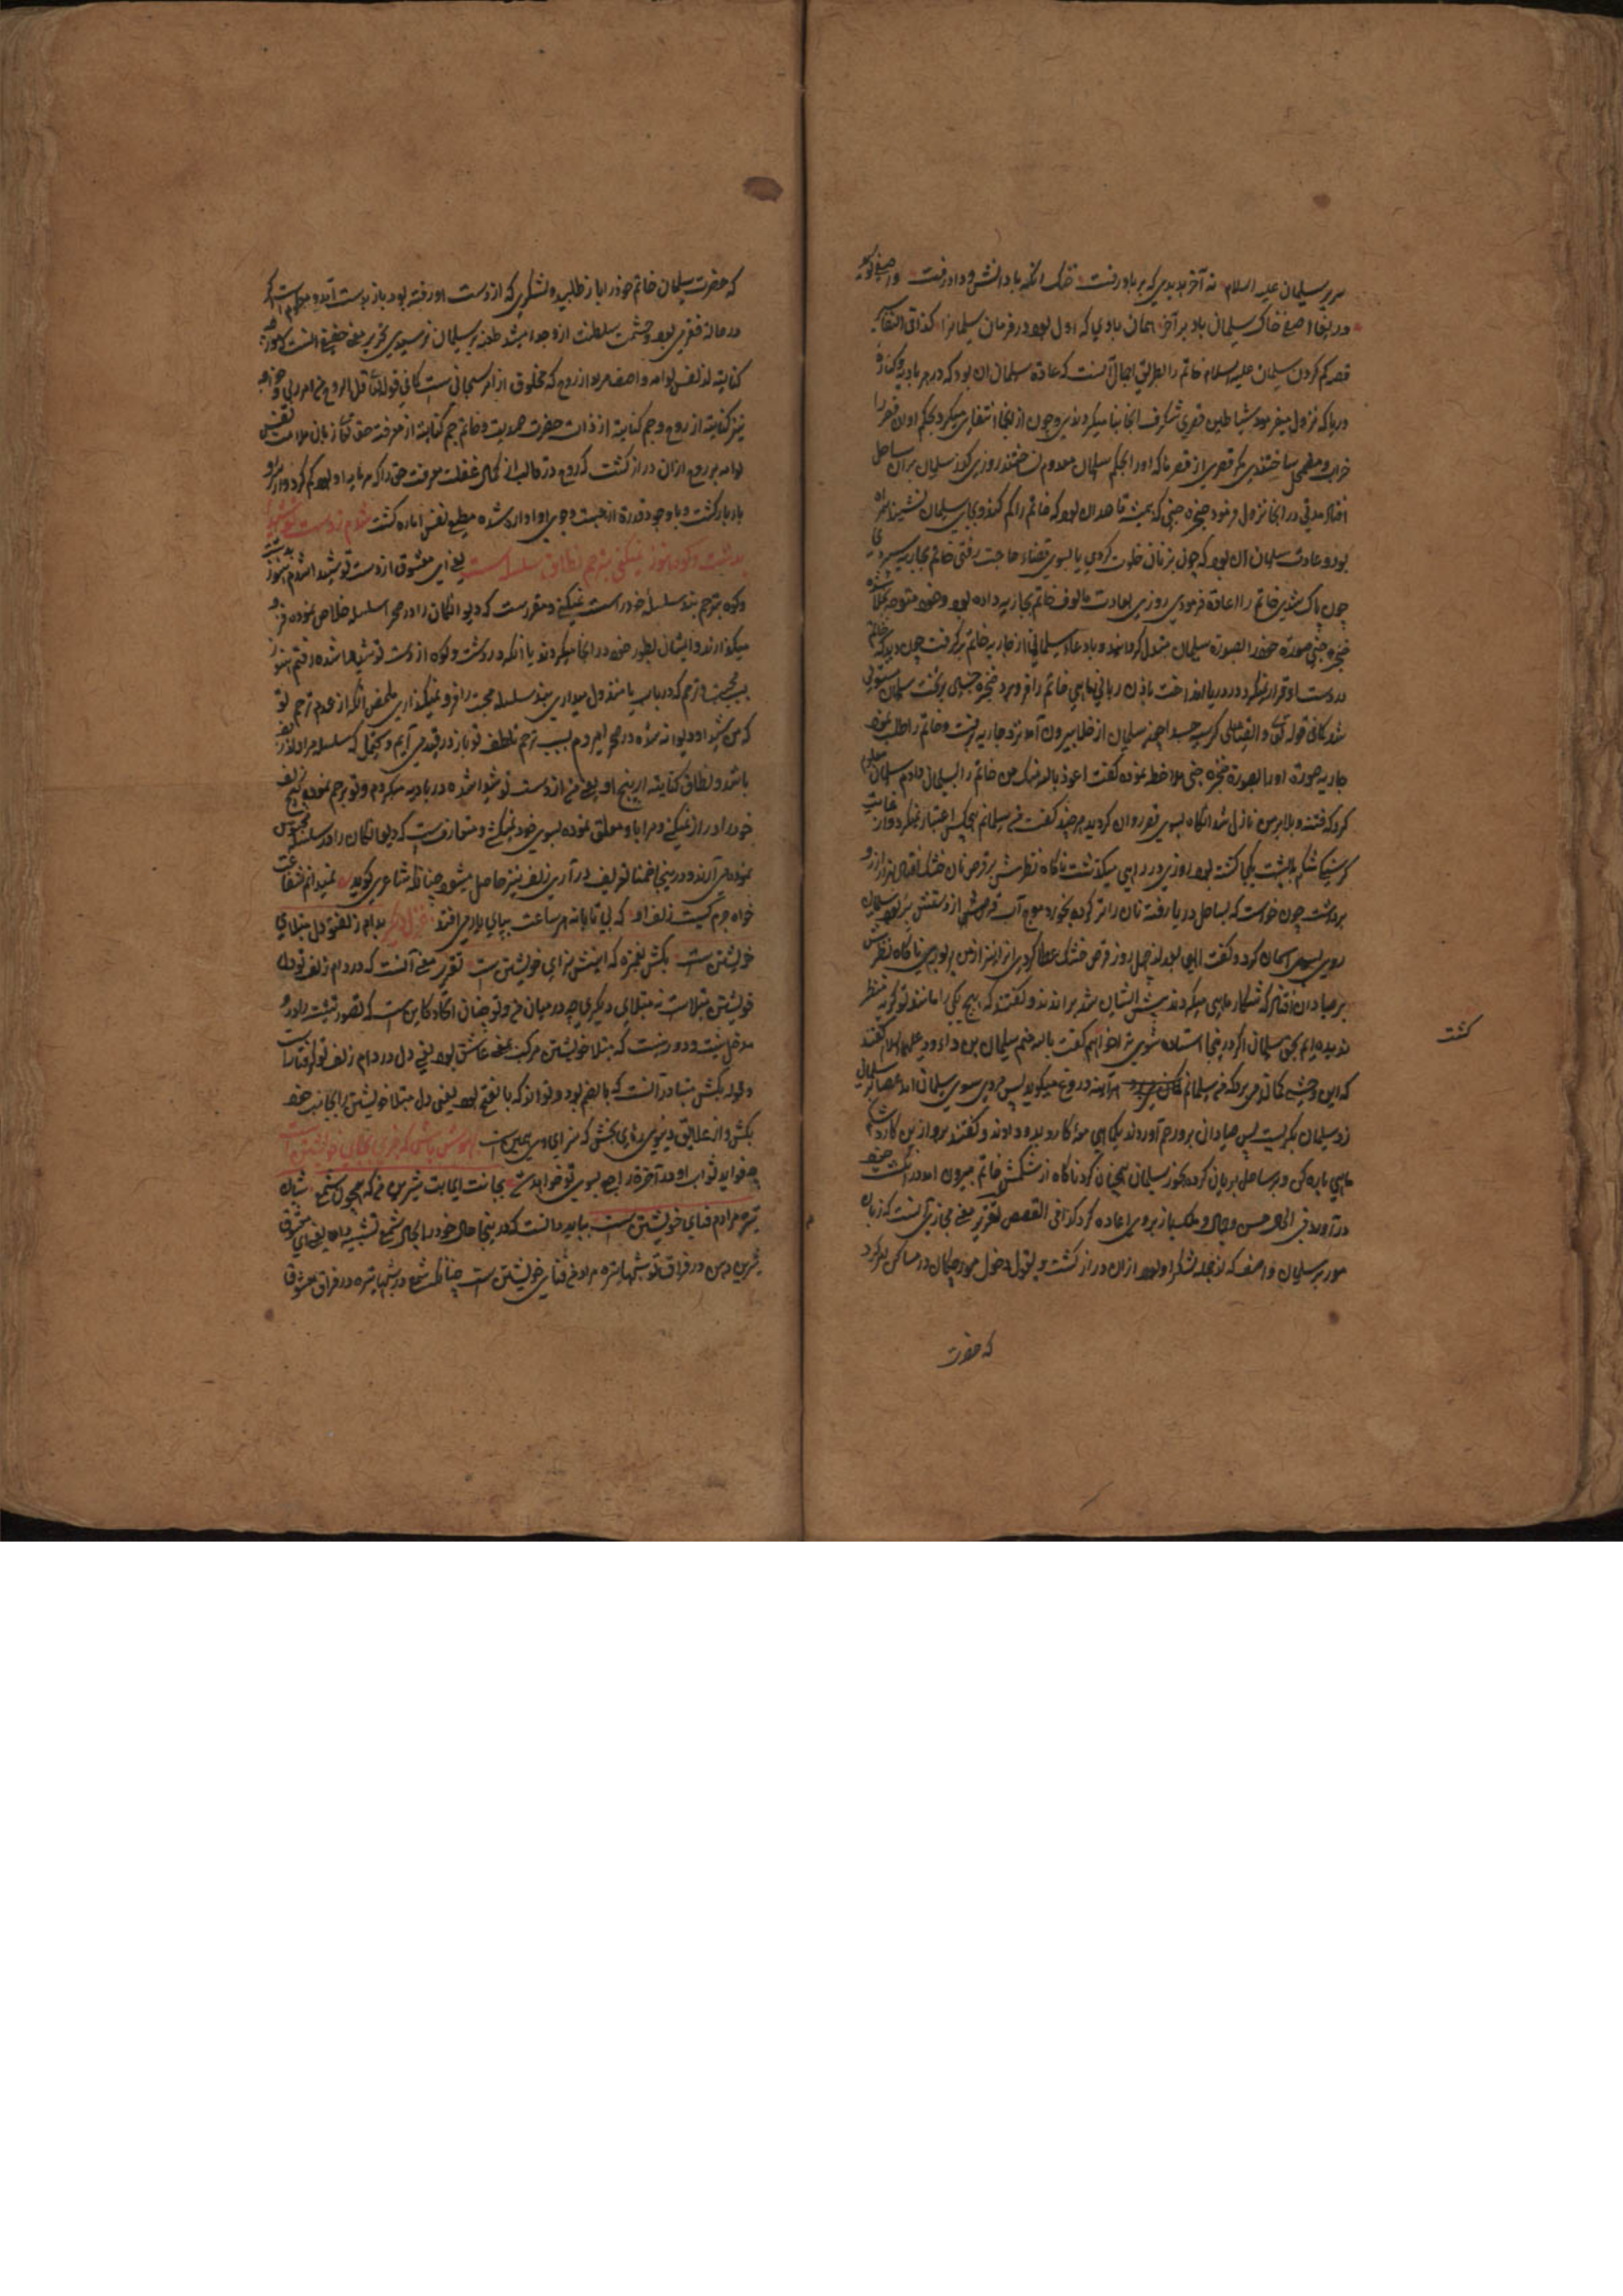 سریر سلیمان علیه السلام نه آخر بدیدی که بر باد رفت خنک انکه با دانش و داد رفت و آصفی گوید
در بقا آصفی خاک سلیمان باد بر آخر همان بادی که اول بود در فرمان سلیمانرا کذا فی التفاسیر
قصه کم کردن سلیمان علیه السلام خاتم را بطریق اجمال آنست که عادة سلیمان ان بود که در هر بادیه و کنارهٔ
دریا که نزول میفرمود شیاطین قصری شکرف انجا بنا میکردندی و چون از انجا انتقال میکرد بحکم او ان قصر را
خراب و مضمحل ساختندی مکر قصری از قصرها که اورا بحکم سلیمان معدوم نساختند روزی کذر سلیمان بران ساحل
افتاد مدتی در انجا نزول فرمود صخره جنی که همیشه قاصد ان بود که خاتم را کم کند و بجای سلیمان نشیند همراه
بود و عادت سلیمان ان بود که چون بزنان خلوت کردی یا بسوی قضاء حاجت رفتی خاتم بجاریه سپردی
چون پاک شدی خاتم را اعادة فرمودی روزی بعادت مالوف خاتم بجاریه داده بود و خود متوجه خلا شده
صخره جنی صورة خود را بصورة سلیمان متبدل کردانید و بادعاء سلیمانی از جاریه خاتم برکرفت چون دید که خاتم
در دست او قرار نمیکرد در دریا انداخت باذن ربانی ماهی خاتم را فرو برد صخره جنی بر تخت سلیمان مستولی
شد کما فی قوله تعالی و القینا علی کرسیه جسدا چون سلیمان از خلا بیرون آمد نزد جاریه رفت و خاتم را طلب نمود
جاریه صورة اورا بصورة صخره جنی ملاحظه نموده کفت اعوذ بالله منک من خاتم را بسلیمان دادم سلیمان معلوم
کرد که فتنه و بلا بر من نازل شد انکاه بسوی قصر روان کردید هر چند کفت من سلیمانم هیچکس اعتبار نمیکرد و از غایت
کرسنکی شکم به پشت یکجا کشته بود روزی در راهی میکذشت ناکاه نظرش بر قرص نان خشک افتاد انرا از رو
برداشت چون خواست که بساحل دریا رفته نان را تر کرده بخورد موج آب قرص از دستش بربود سلیمان
روی بسوی آسمان کرد و کفت الهی بعد از چهل روز قرص خشک عطا کردی انرا نیز از من بربودی ناکاه نظرش
بر صیادان افتاد که شکار ماهی میکردند پیش ایشان شد براندند و کفتند که هیچ یکی را مانند تو کریه منظر
ندیده ایم بحق سلیمان اگر در اینجا استاده شوی ترا خواهیم کفت بالله منم سلیمان بن داود علیهما السلام کفتند
که این وحشی کمان می برد که من سلیمانم هر آینه دروغ میکوید پس مردی سوی سلیمان امد عصا بر سر سلیمان
زد سلیمان بکریست پس صیادان برو رحم آوردند یکماهی مع کارد بدو دادند و کفتند برو ازین کارد شکم
ماهی پاره کن و بر ساحل بریان کرده بخور سلیمان همچنان کرد ناکاه از شکمش خاتم بیرون امد در انکشت خود
درآورد فی الحال حسن و جمال و ملک باز بروی اعاده کرد کذا فی القصص تقریر معنی مجازی آنست که زبان
مور بر سلیمان و آصف که از جمله لشکر او بود ازان دراز کشت و بقول دخول مورچکان در مساکن امر کرد
که حضرت
کشت
که حضرت سلیمان خاتم خود را باز طلبید و لشکری که از دست او رفته بود باز بدست آمد و معلوم است که
در حالة فقر بود و حشمت سلطنت ازو جدا میشد طعنه بر سلیمان نرسیدی تحریر معنی حقیقی آنست که مور
کنایة از نفس لوامه و آصف مراد از روح که مخلوق از امر سبحانی است کما فی قوله تعالی قل الروح من امر ربی و خواجه
نیز کنایة از روح و جم کنایة از ذات حضرت صمدیت و خاتم جم کنایة از معرفت حق تعالی زبان ملامت نفس
لوامه بر روح ازان دراز کشت که روح در قالب از کمال غفلت معرفت حق را که سرمایه او بود کم کرد و از سر او
باد بار کشت و با وجود قدرة از جست و جوی او ادا رد شده مطیع نفس اماره کشت شدم ز دست تو شیدا
بدشت و کوه هنوز نمیکنی بترحم نطاق سلسله سست یعنی ای معشوق از دست تو شیدا شدم هنوز بدشت
و کوه بترحم بند سلسلهٔ خود را سست نمیکنی و مقررست که دیوانکان را در صحرا سلسله خلاص نموده فرو
میکذارند و ایشان بطور خود در انجا میکردند یا انکه در دشت و کوه از دست تو شیدا شده رفتم هنوز
بسبب محبت و ترحم که در باب ما مبذول میداری بند سلسله محبت را فرو نمیکذاری ملخص آنکه از عدم ترحم تو
که من شیدا و دیوانه شده در صحرا میروم بسبب ترحم تلطف تو باز در قید می آیم و محتمل که سلسله مراد از زلف
باشد و نطاق کنایة از پیچ او یعنی من از دست تو شیدا شده در بادیه میکردم و تو ترحم نموده زلف
خود را دراز نمیکنی و مرا با و معلق نموده بسوی خود نمیکشی و متعارفست که دیوانکان را در سلسله محبوس
نموده می آرند و در اینجا ضمنا توصیف درازی زلف نیز حاصل میشود چنانکه شاعری کوید نمیدانم شفاعت
خواه جرم کیست زلف او که بی تابانه هر ساعت بپای یار می افتد غزل دیگر بدام زلف تو دل مبتلای
خویشتن است بکش بغمزه که اینش سزای خویشتن است تقریر معنی آنست که در دام زلف تو دل
خویشتن مبتلاست نه مبتلای دیکری چه در میان من و تو چنان اتحاد کاین است که تصور تثنیت را در و
مدخل نیست و دور نیست که مبتلا خویشتن مرکب بمعنی عاشق بود یعنی دل در دام زلف تو گرفتارست
و لفظ بکش متبادر آنست که بالضم بود و تواند که بالفتح بود یعنی دل مبتلا خویشتن را بجانب خود
بکش و از علایق دنیوی رهای بخش که سزای او همین است
چه فواید ثواب او در آخرة راجع بسوی تو خواهد شد بجانت ای بت شیرین من که همچون شمع شبان
تیره مرادم فنای خویشتن است بباید دانست که در اینجا حال خود را بحال شمع تشبیه داده یعنی ای معشوق
شیرین من در فراق تو شبهای تیره مراد من فنای خویشتن است چنانکه شمع در شبها تیره در فراق معشوق